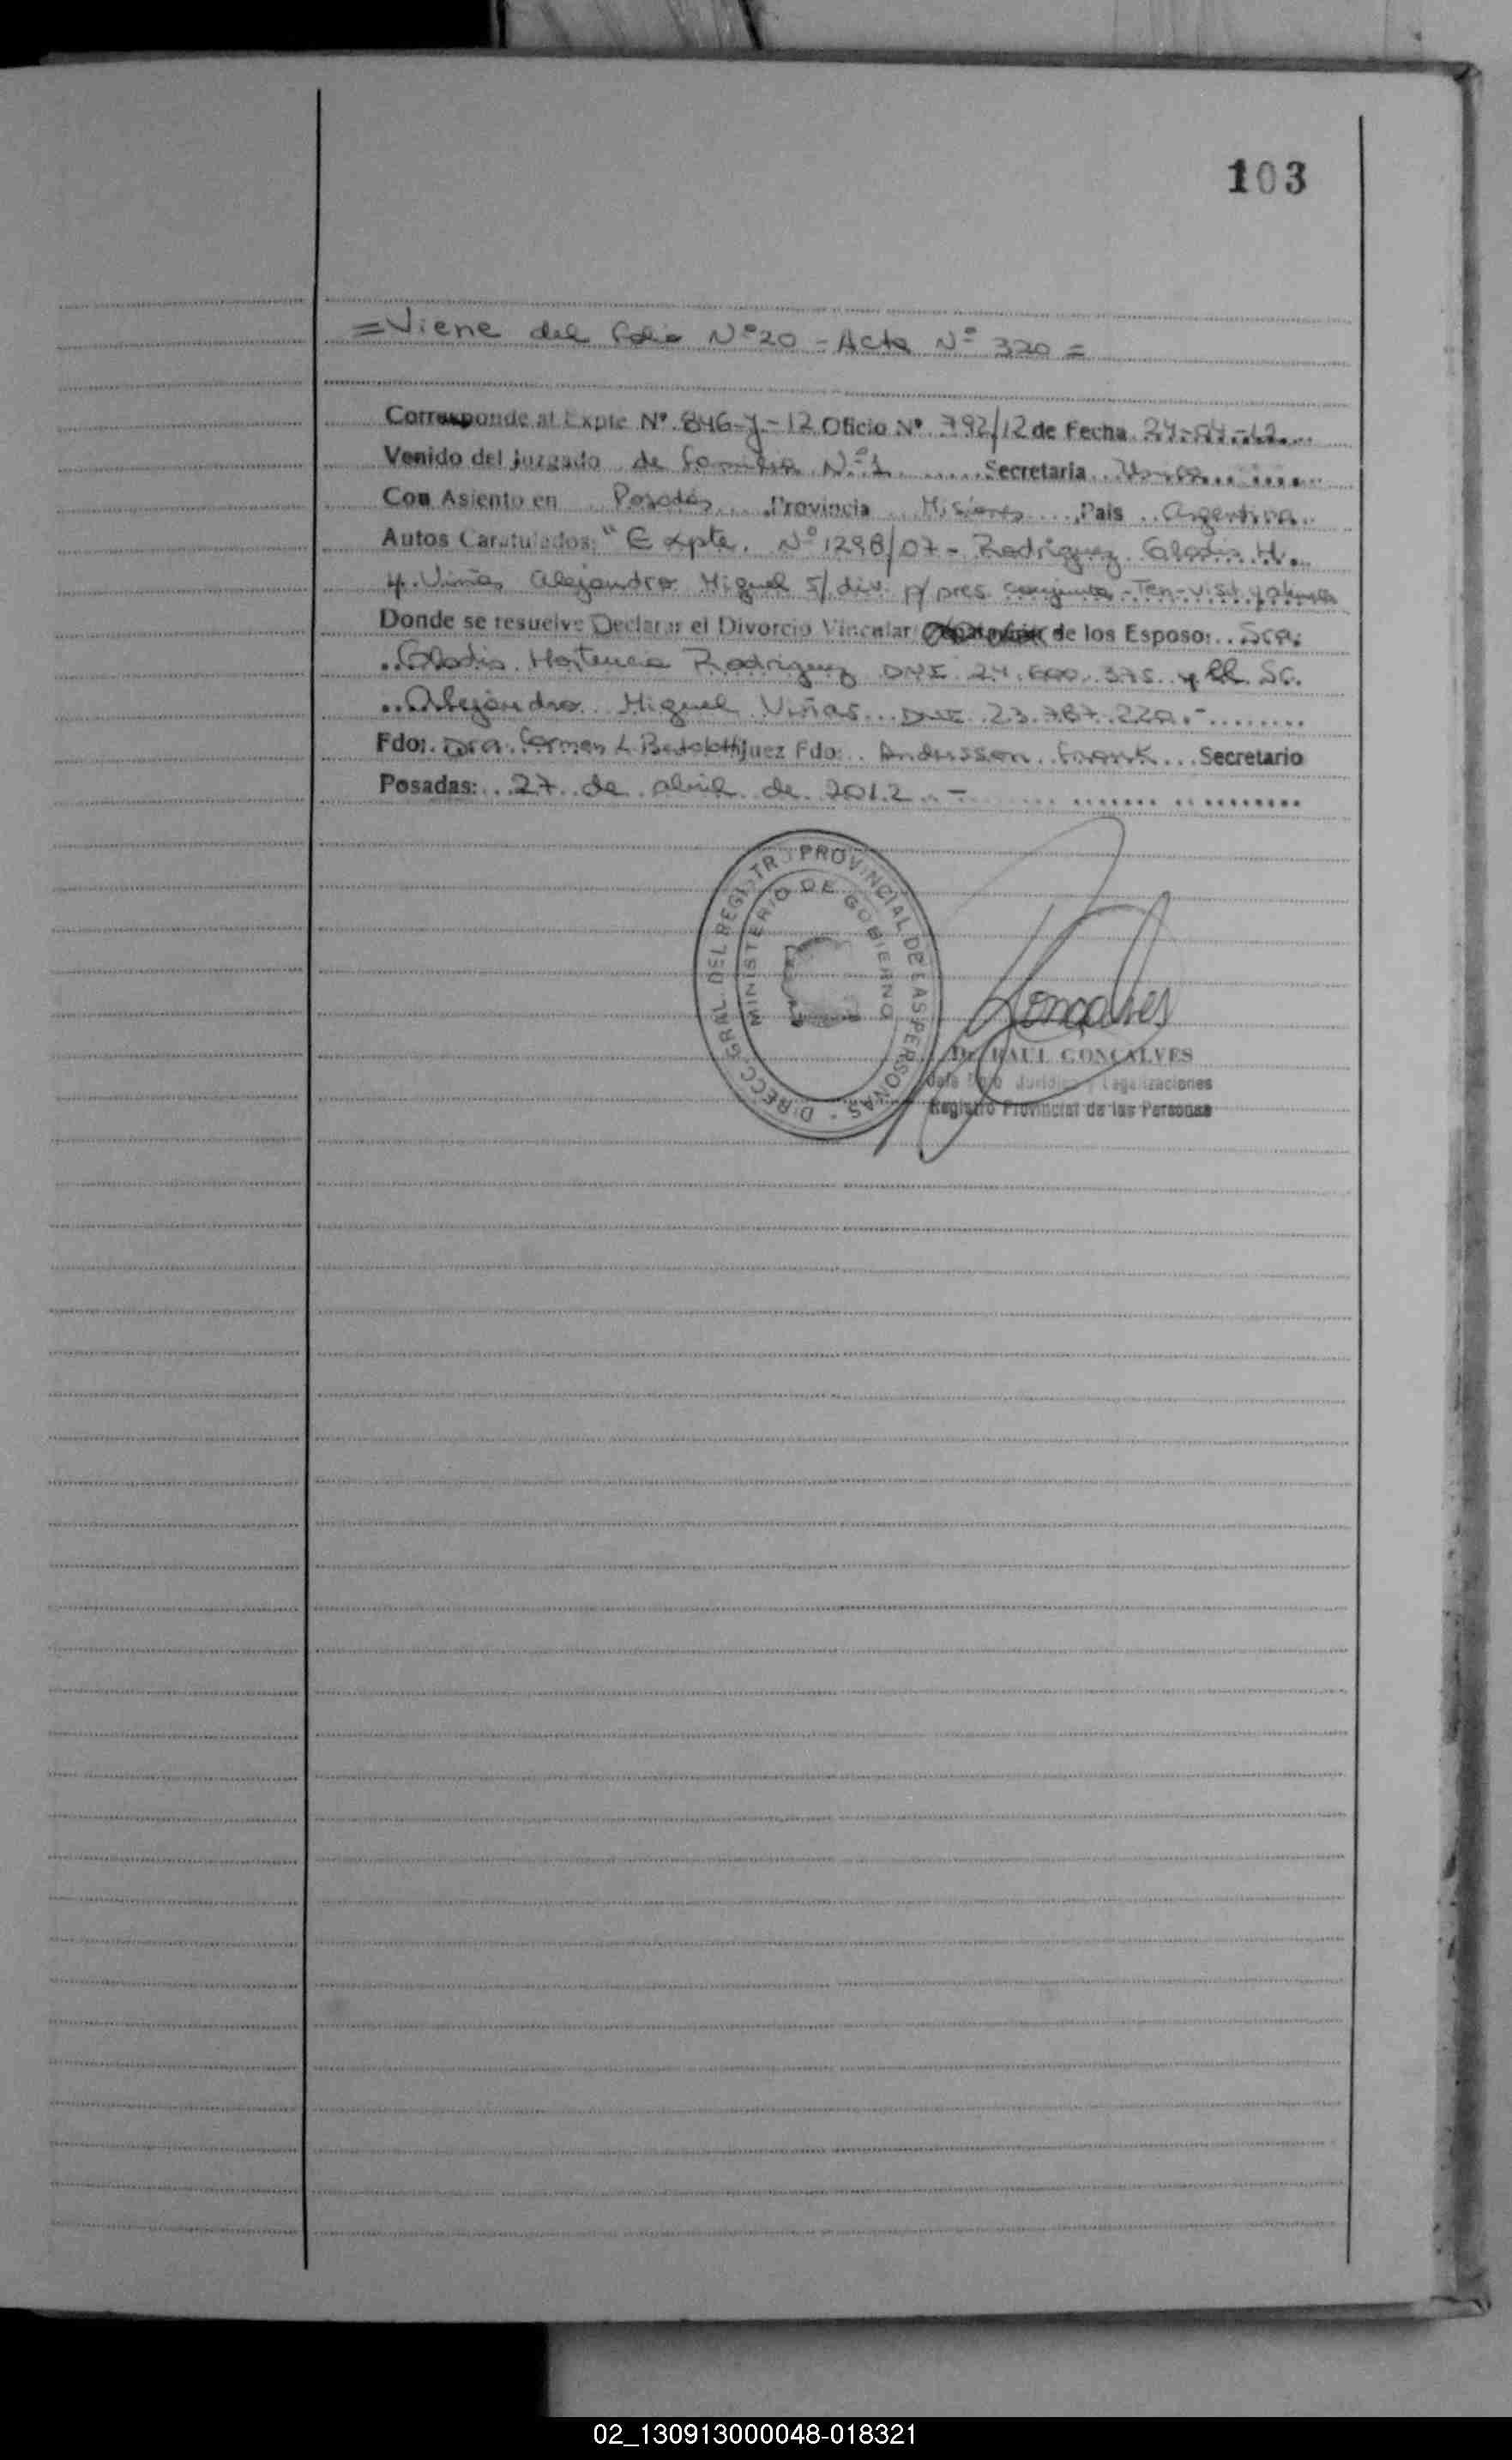 103
= Viene del folio Nº 20 - Acta Nº 320 =
Corresponde al Expte Nº 846-y-12 Oficio Nº 792/12 de Fecha 24-04-12
Venido del Juzgado de familia Nº 1 Secretaria Unica
Con Asiento en Posadas Provincia Misiones Pais Argentina
Autos Caratulados: "Expte. Nº 1298/07 - Rodriguez Gladis H.
y. Viñas Alejandro Miguel s/ div. p/ pres. conjunta - Ten - visit. y alimentos
Donde se resuelve Declarar el Divorcio Vincular de los Esposo: Sra.
Gladis Hortencia Rodriguez DNI 24.600.375 y el Sr.
Alejandro Miguel Viñas DNI 23.787.220.-
Fdo: Dra. Carmen L. Juez Fdo: Andersson Frank Secretario
Posadas: 27 de abril de 2012.-
DIRECC. GRAL. DEL REGISTRO PROVINCIAL DE LAS PERSONAS
MINISTERIO DE GOBIERNO
Gonçalves
Dr. RAUL GONÇALVES
Jefe Juridico y Legalizaciones
Registro Provincial de las Personas
02_130913000048-018321